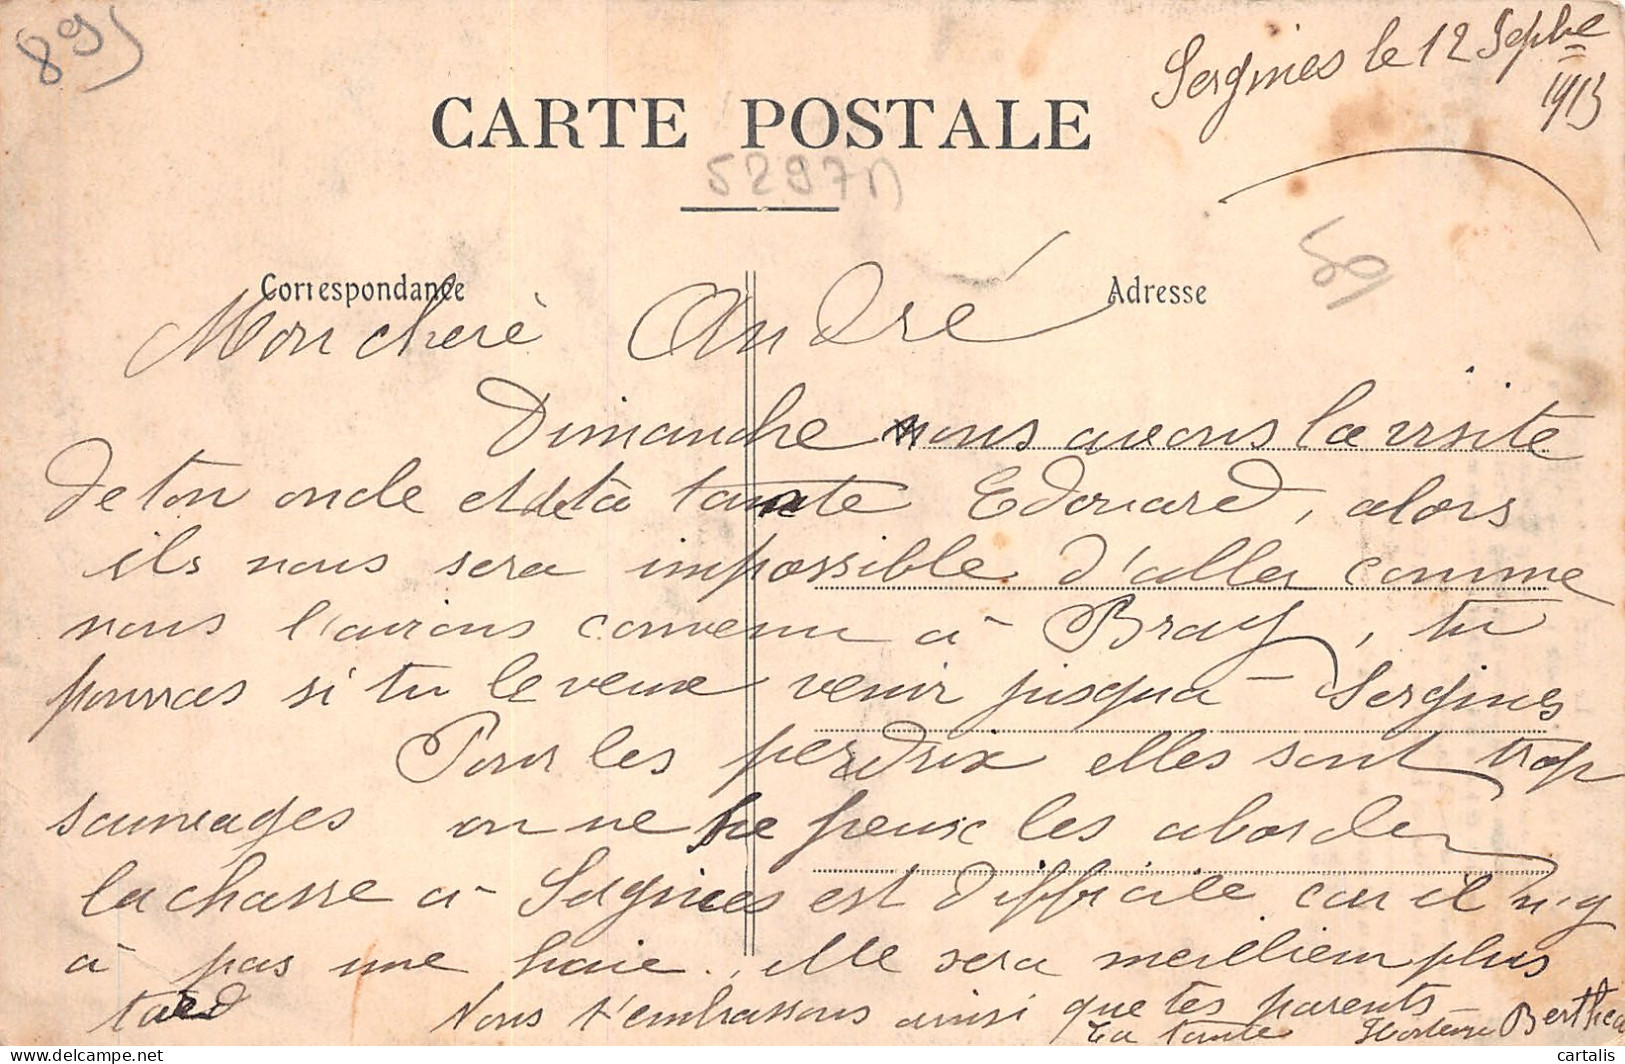 89
Sergines le 12 Septbre
1913
CARTE POSTALE
5297
59
Correspondance
Adresse
Mon cheré André
Dimanche nous avons la visite
de ton oncle et de ta tante Edouard, alors
ils nous sera impossible d'aller comme
nous l'avions convenu à Bray, tu
pourras si tu le veux venir jusqua Sergines
Pour les perdrix elles sont trop
sauvages on ne peux les aborder
la chasse à Sergines est difficile car il n'y
à pas une haie. elle sera meillieur plus
tard Nous t'embrassons ainsi que tes parents
Ta tante Hortense Berthe
cartalis
delcampe.net